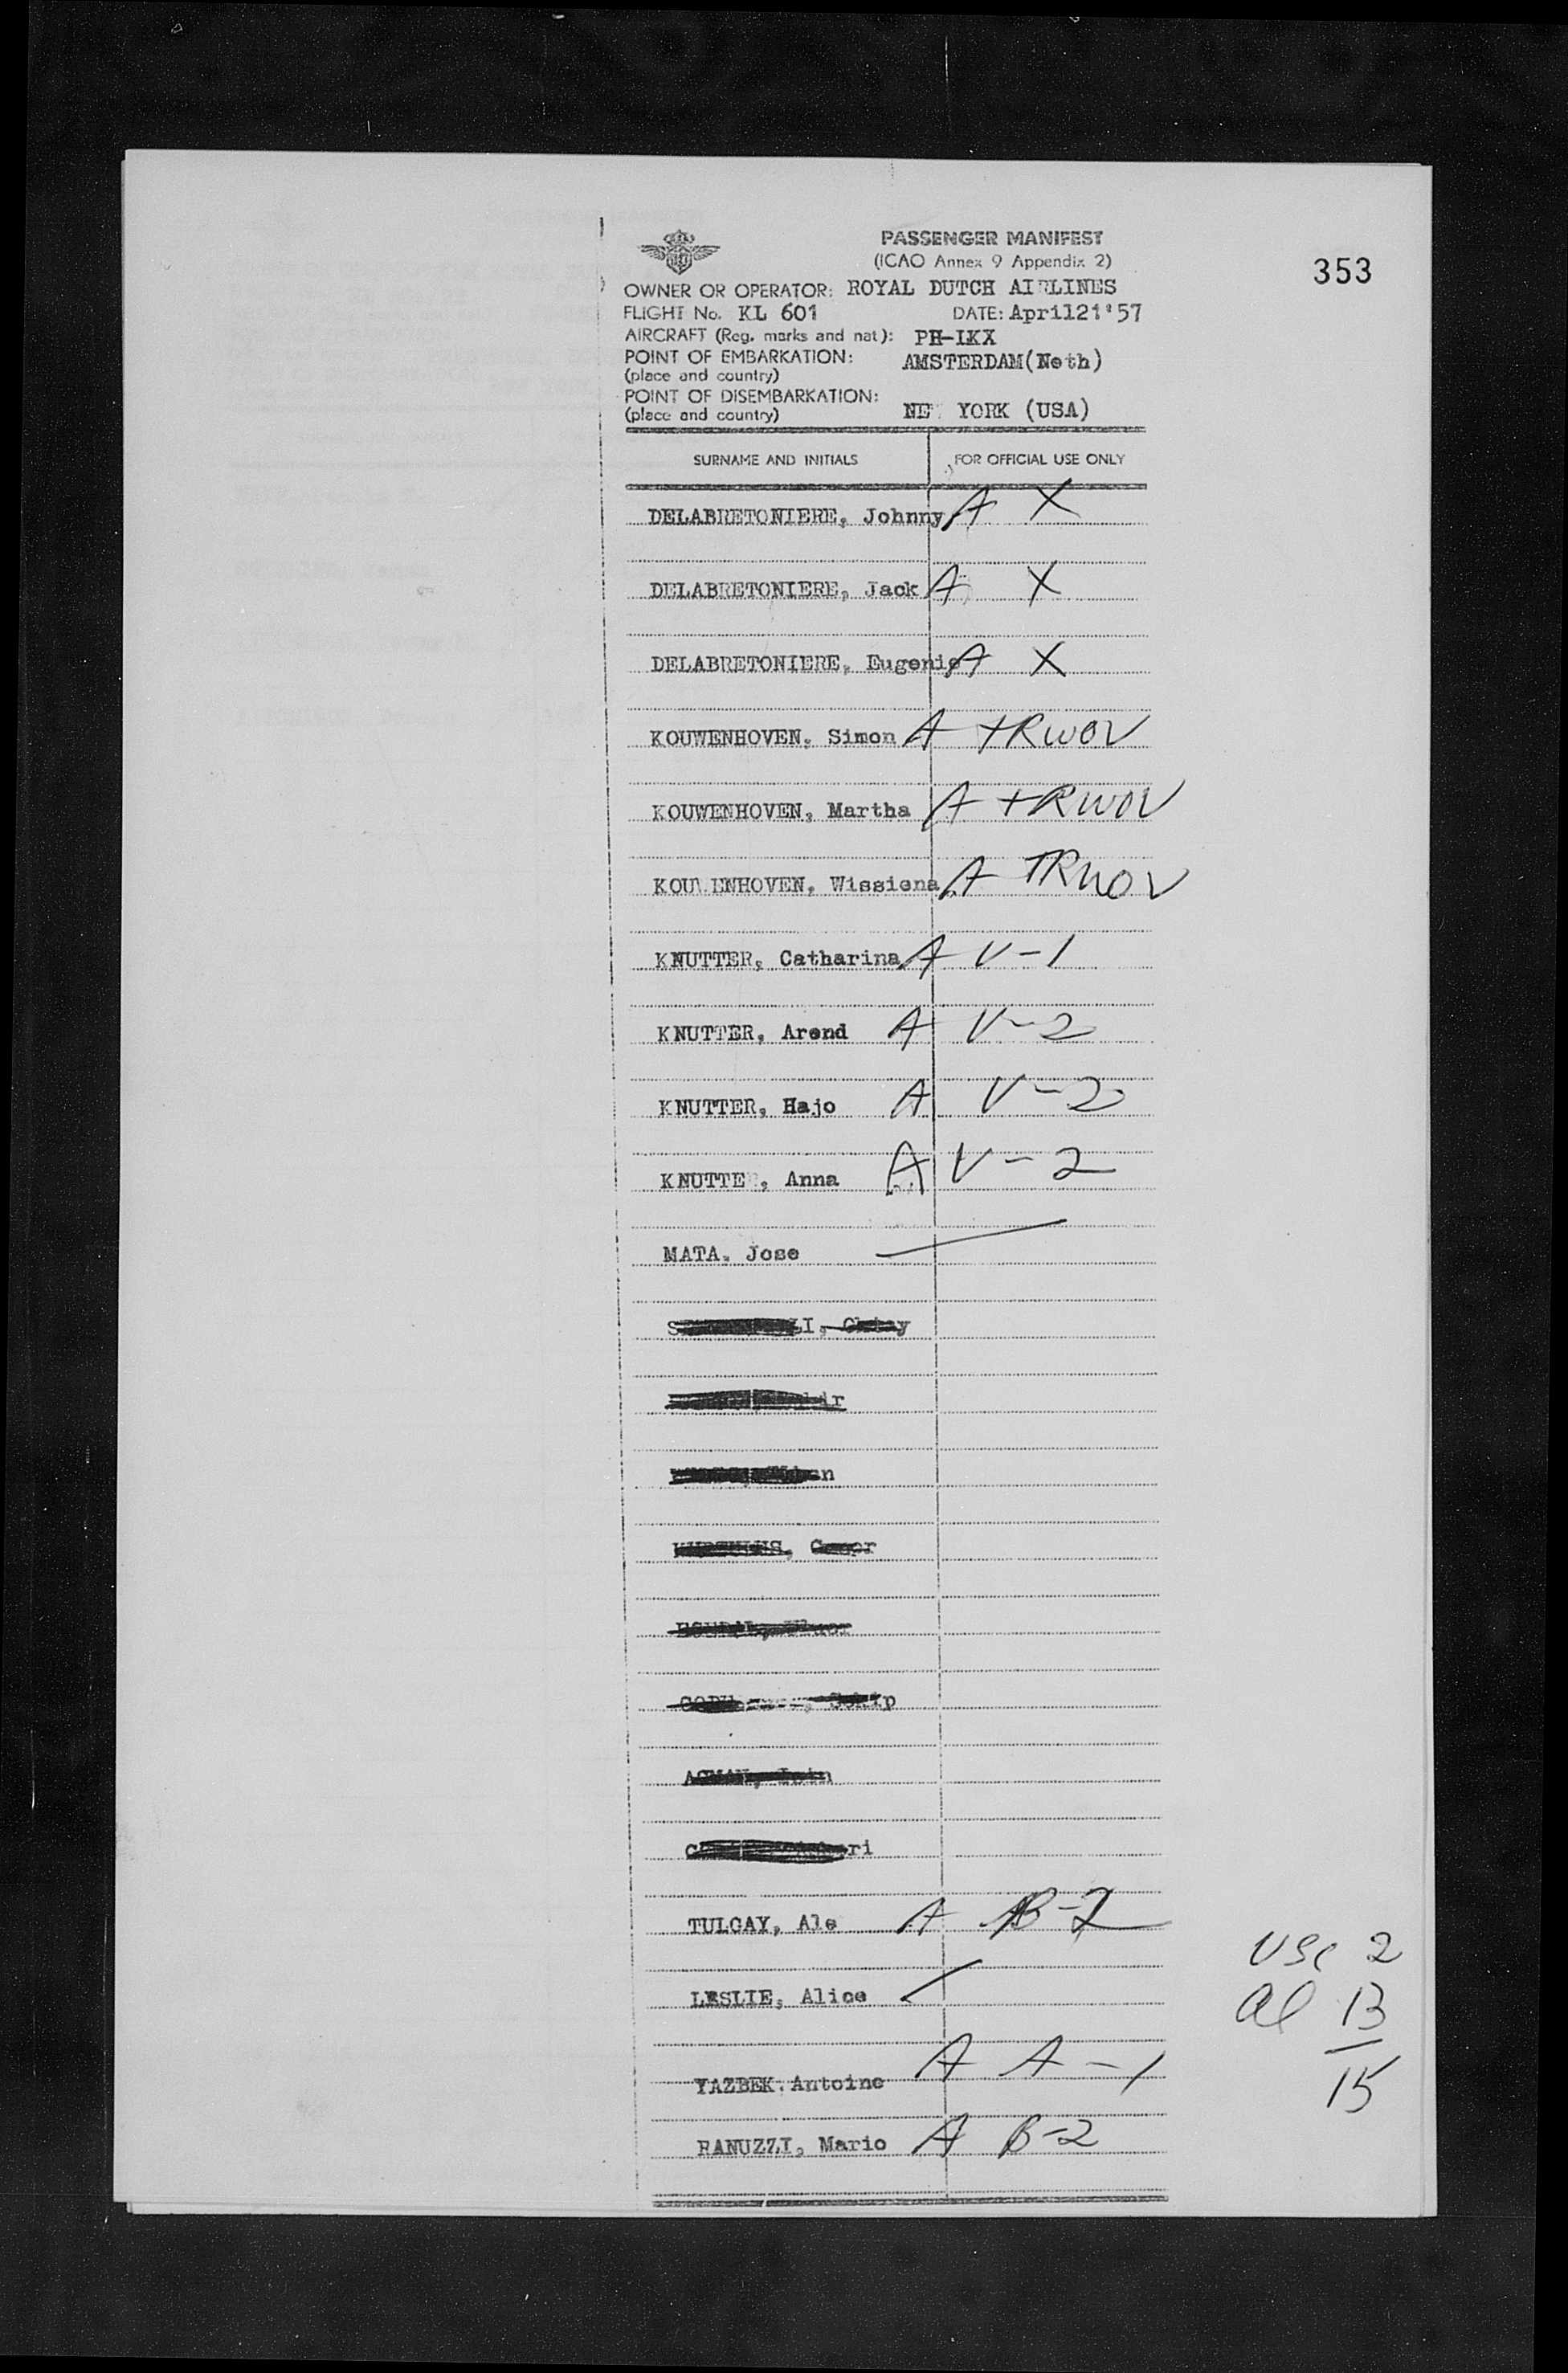 353
PASSENGER MANIFEST
(ICAO Annex 9 Appendix 2)
OWNER OR OPERATOR: ROYAL DUTCH AIRLINES
FLIGHT No. KL 601 DATE: April21'57
AIRCRAFT (Reg. marks and nat): PH-LKX
POINT OF EMBARKATION: AMSTERDAM(Neth)
(place and country)
POINT OF DISEMBARKATION:
(place and country) NEW YORK (USA)
SURNAME AND INITIALS FOR OFFICIAL USE ONLY
DELABRETONIERE, Johnny A X
DELABRETONIERE, Jack A X
DELABRETONIERE, Eugenie A X
KOUWENHOVEN, Simon A +RWOV
KOUWENHOVEN, Martha A +RWOV
KOUWENHOVEN, Wissiena A TRWOV
KNUTTER, Catharina A V-1
KNUTTER, Arend A V-2
KNUTTER, Hajo A V-2
KNUTTER, Anna A V-2
MATA, Jose
TULGAY, Ale A B-2
LESLIE, Alice
YAZBEK, Antoine A A-1
RANUZZI, Mario A B-2
USC 2
al 13
15